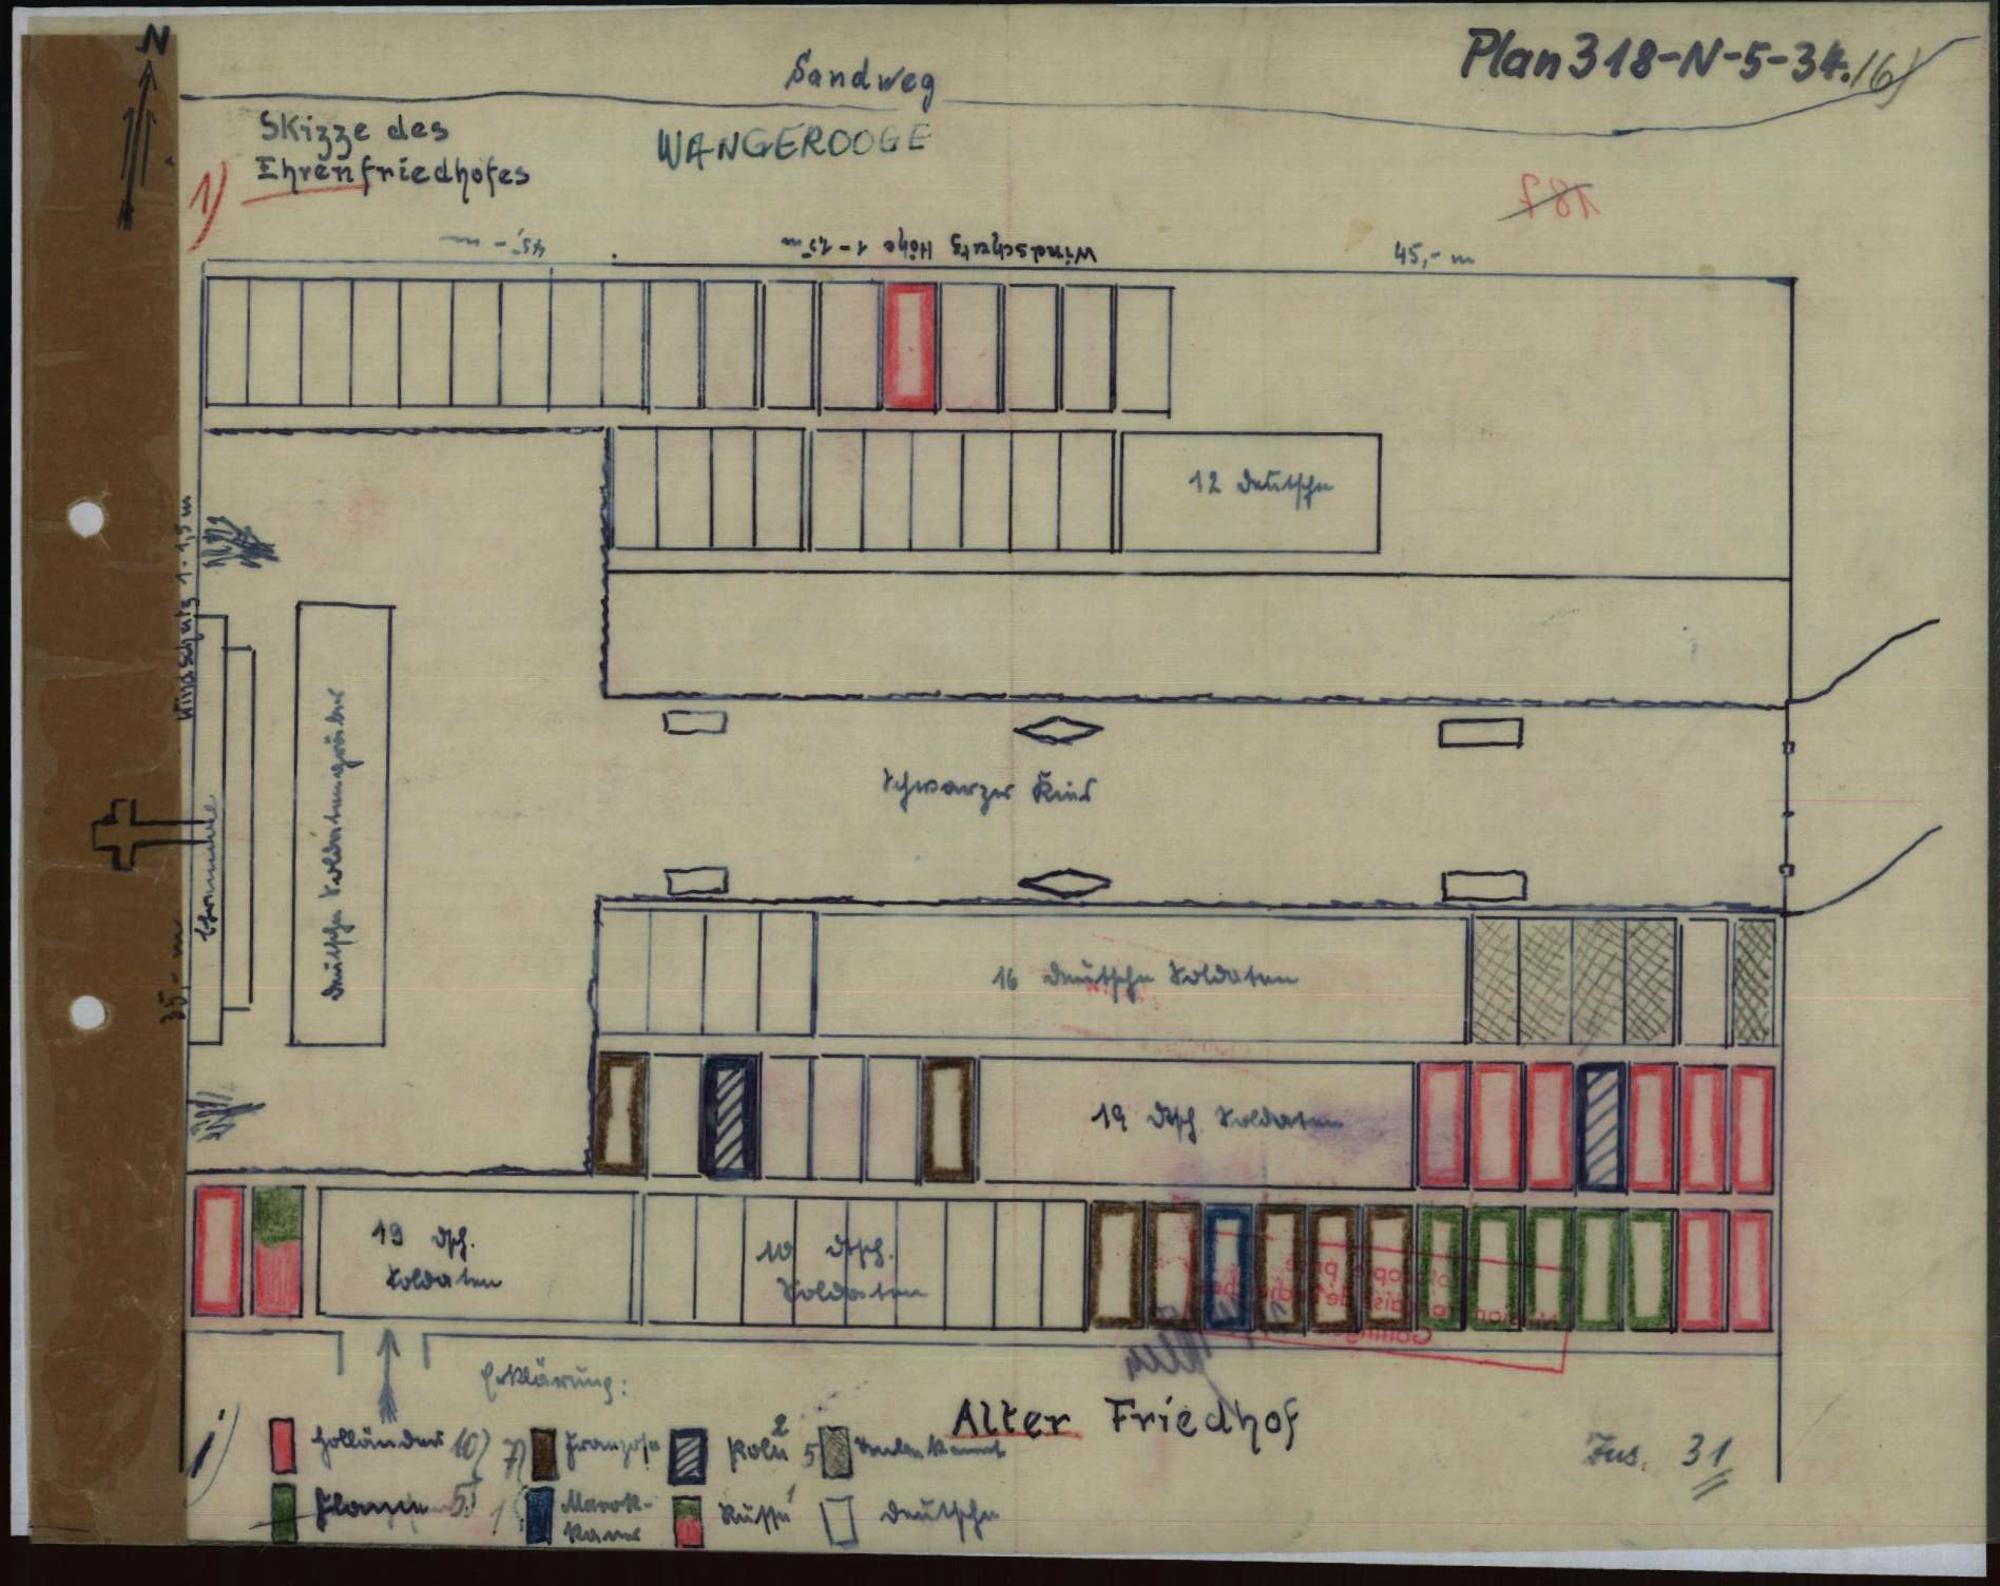 N
Sandweg
Plan 318-N-5-34./6)
Skizze des
Ehrenfriedhofes
WANGEROOGE
1)
187
45,- m
Windschutz Höhe 1-1,5 m
45,- m
12 Deutsche
Windschutz 1-1,5 m
Deutsche Soldatengräber
Schwarzer Kies
35,- m
16 Deutsche Soldaten
19 dtsch. Soldaten
19 dtsch.
Soldaten
10 dtsch.
Soldaten
Erklärung:
Alter Friedhof
Holländer 10)
7) Franzose
Polen 2
5 Unbekannt
Zus. 31
5)
1 Marok-
kaner
Russe 1
Deutsche